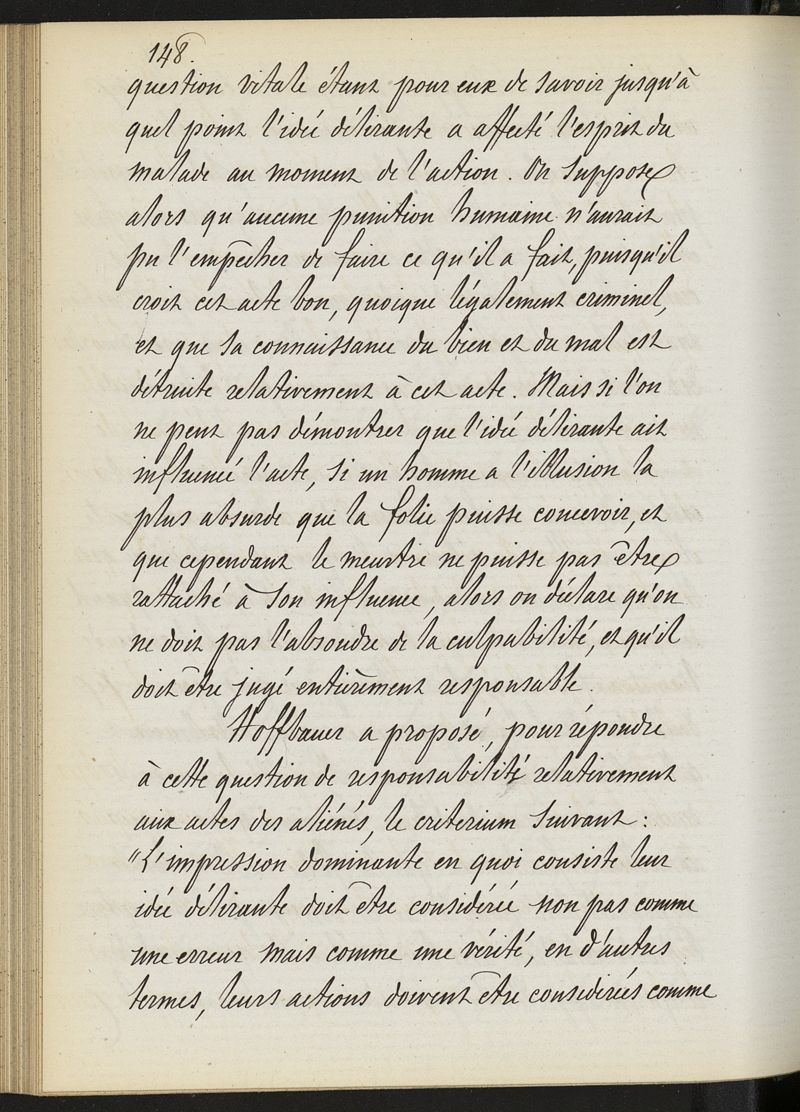 148.
question vitale étant pour eux de savoir jusqu'à
quel point l'idée délirante a affecté l'esprit du
malade au moment de l'action. On suppose
alors qu'aucune punition humaine n'aurait
pu l'empêcher de faire ce qu'il a fait, puisqu'il
croit cet acte bon, quoique légalement criminel,
et que sa connaissance du bien et du mal est
détruite relativement à cet acte. Mais si l'on
ne peut pas démontrer que l'idée délirante ait
influencé l'acte, si un homme a l'illusion la
plus absurde que la folie puisse concevoir, et
que cependant le meurtre ne puisse pas être
rattaché à son influence, alors on déclare qu'on
ne doit pas l'absoudre de la culpabilité, et qu'il
doit être jugé entièrement responsable.
Hoffbauer a proposé, pour répondre
à cette question de responsabilité relativement
aux actes des aliénés, le criterium suivant :
"L'impression dominante en quoi consiste leur
idée délirante doit être considérée non pas comme
une erreur mais comme une vérité, en d'autres
termes, leurs actions doivent être considérées comme